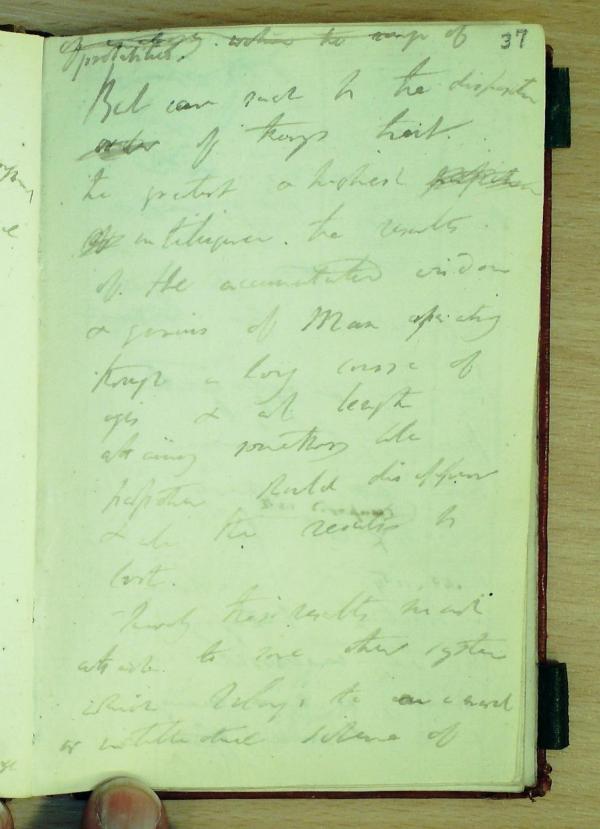 37
of within the range of
probabilities.
But can such be the disposition
of things that
the greatest & highest
intelligence. the results
of the accumulated wisdom
& genius of Man operating
through a long course of
ages & at length
attaining something like
perfection should disappear
& all the results be
lost.
Surely these results must
attach to some other system
which belongs to a
or intellectual scheme of